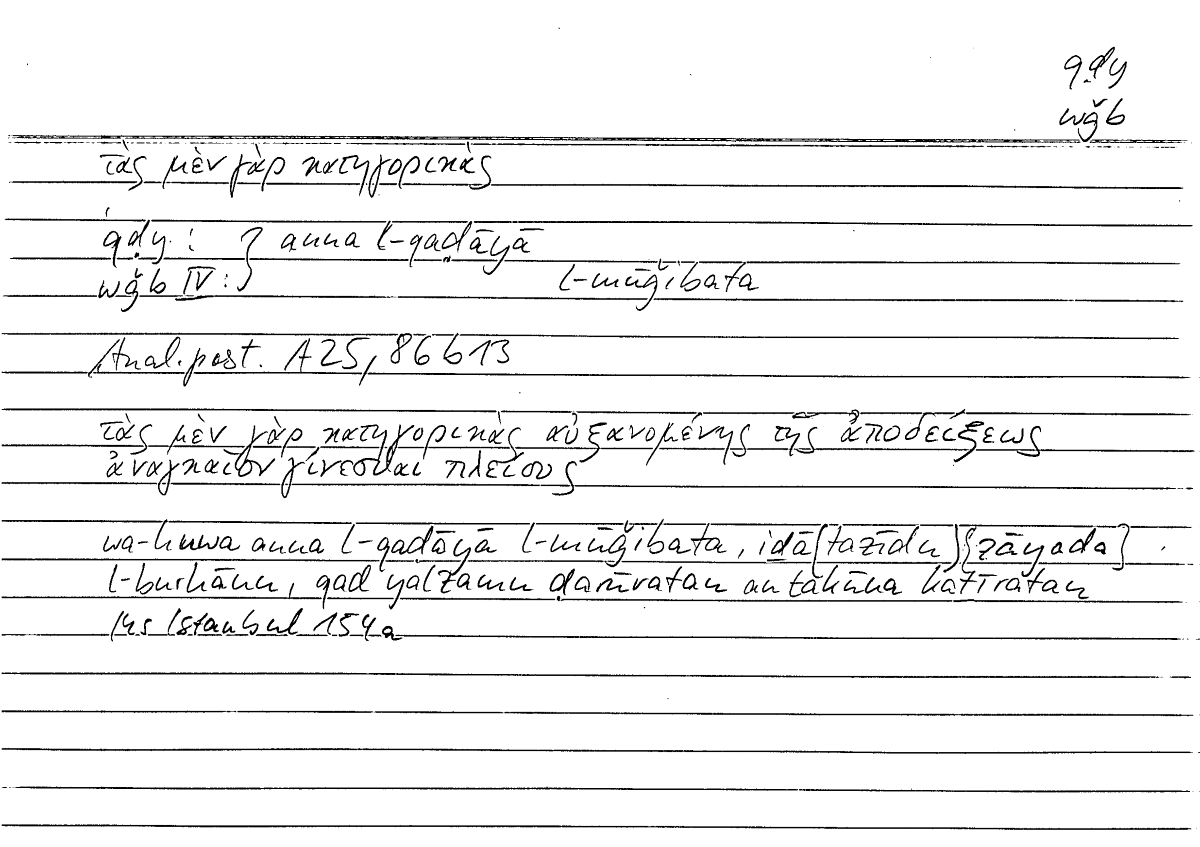 qḍy
wǧb
τὰς μὲν γὰρ κατηγορικὰς
qḍy : } anna l-qaḍāyā
wǧb IV : l-mūǧibata
Anal. post. A25, 86b13
τὰς μὲν γὰρ κατηγορικὰς αὐξανομένης τῆς ἀποδείξεως
ἀναγκαῖον γίνεσθαι πλείους
wa-huwa anna l-qaḍāyā l-mūǧibata, iḏā (tazīdu) {zāyada}
l-burhānu, qad yalzamu ḍarūratan an takūna kaṯīratan
Hs Istanbul 154a